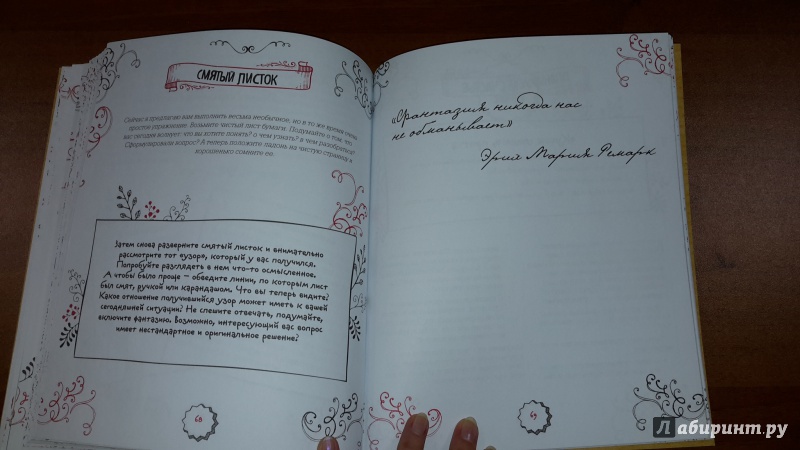 СМЯТЫЙ ЛИСТОК
Сейчас я предлагаю вам выполнить весьма необычное, но в то же время очень
простое упражнение. Возьмите чистый лист бумаги. Подумайте о том, что
вас сегодня волнует: что вы хотите понять? о чем узнать? в чем разобраться?
Сформулировали вопрос? А теперь положите ладонь на чистую страницу и
хорошенько сомните ее
Затем снова разверните смятый листок и внимательно
рассмотрите тот «узор», который у вас получился.
Попробуйте разглядеть в нем что-то осмысленное.
А чтобы было проще — обведите линии, по которым лист
был смят, ручкой или карандашом. Что вы теперь видите?
Какое отношение получившийся узор может иметь к вашей
сегодняшней ситуации? Не спешите отвечать, подумайте,
включите фантазию. Возможно, интересующий вас вопрос
имеет нестандартное и оригинальное решение?
68
«Фантазия никогда нас
не обманывает»
Эрих Мария Ремарк
Лабиринт.ру